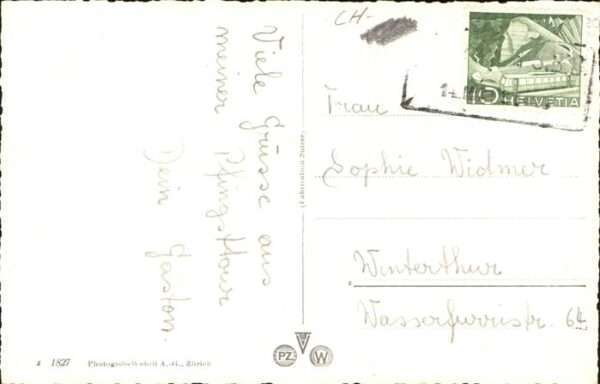 CH-
Viele Grüsse aus
meiner Pfingsttour
Dein Gaston.
HELVETIA
Frau
Sophie Widmer
Winterthur
Wasserfurristr. 64
PZ W
1827 Photoglob-Wehrli A.-G., Zürich